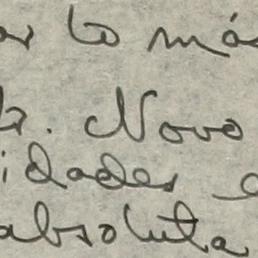 to má
Novo
idades
absoluta